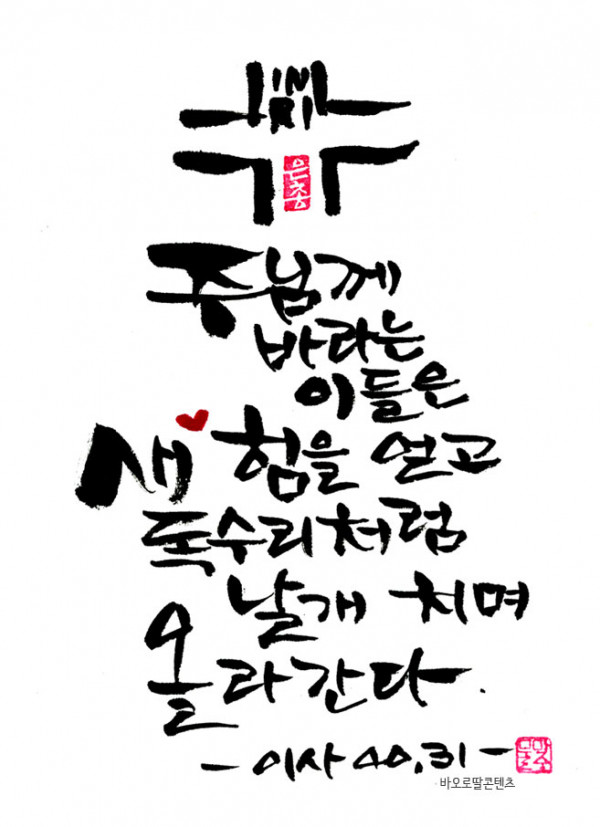 INRI
은총
주님께
바라는
이들은
새 힘을 얻고
독수리처럼
날개 치며
올라간다.
- 이사 40,31 -
바오로딸콘텐츠